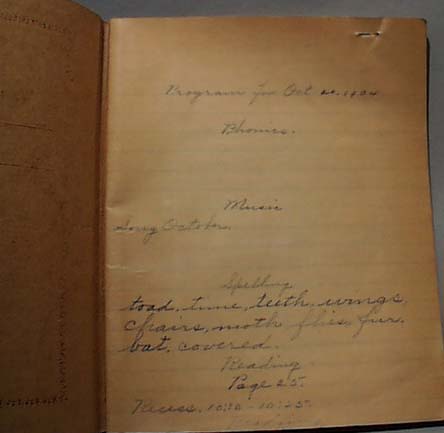 Program for Oct 1904
Phonics.
Music
Song October.
Spelling
toad, tune, teeth, wings,
chairs, moth flies, fur,
bat, covered.
Reading.
Page 25.
Recess. 10:10 - 10:25.